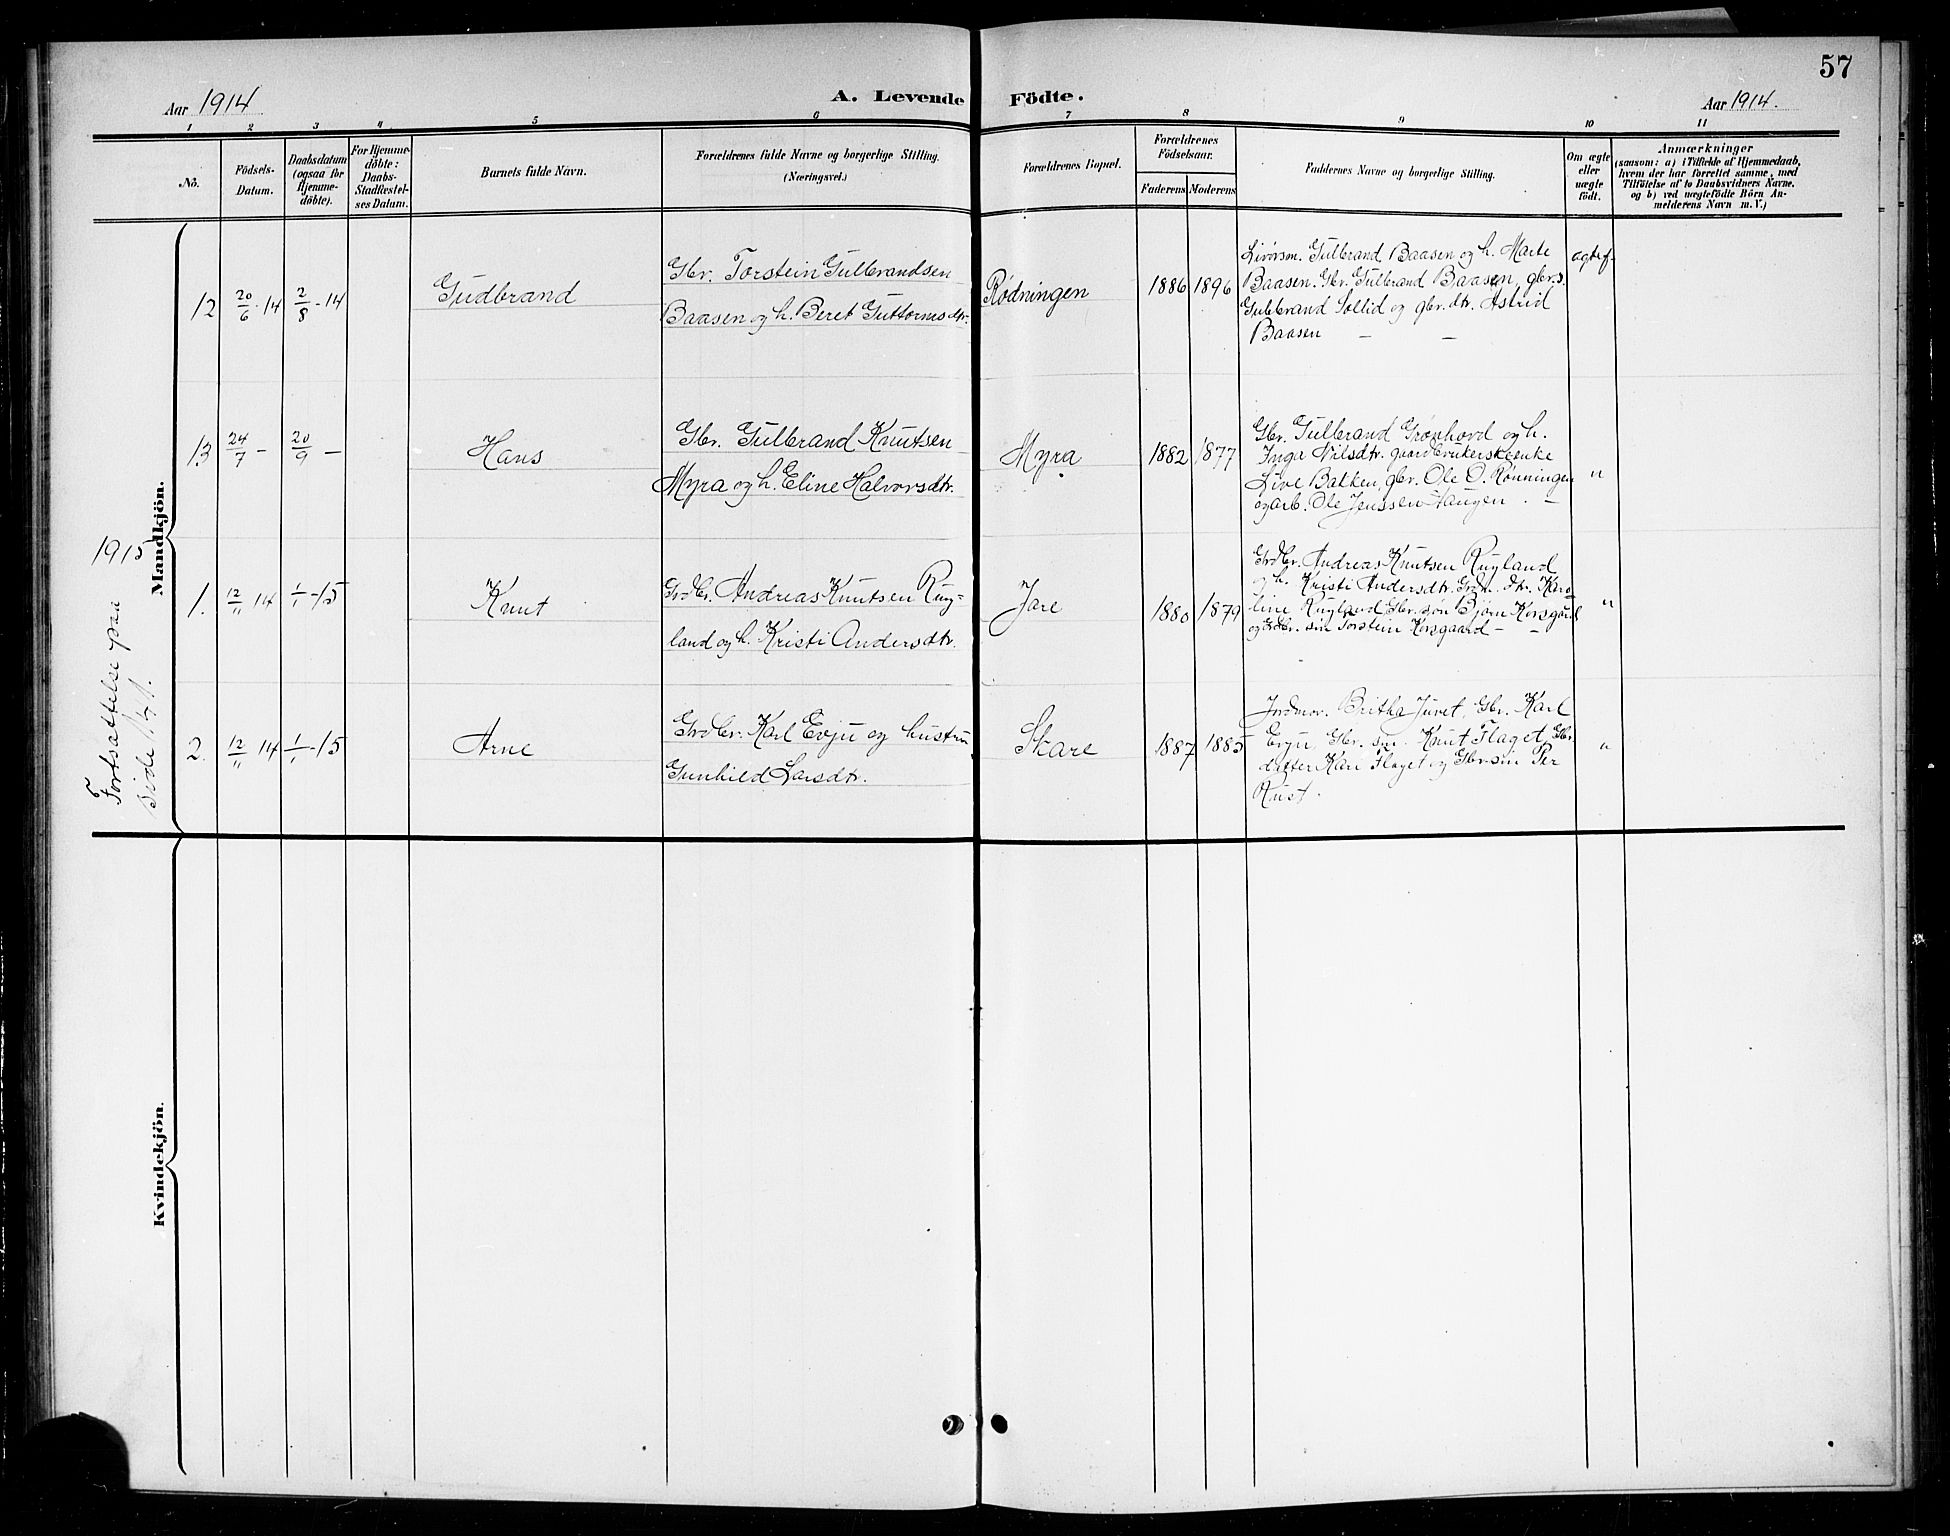 57
Aar 1914
A. Levende Födte.
Aar 1914.
1 2 3 4 5 6 7 8 9 10 11
No.
Födsels-
Datum.
Daabsdatum
(ogsaa for
Hjemme-
döbte).
For Hjemme-
döbte:
Daabs-
Stadfæstel-
ses Datum.
Barnets fulde Navn.
Forældrenes fulde Navne og borgerlige Stilling.
(Næringsvei.)
Forældrenes Bopæl.
Forældrenes
Födselsaar.
Faderens Moderens
Faddernes Navne og borgerlige Stilling.
Om ægte
eller
uægte
födt.
Anmærkninger
(saasom: a) i Tilfælde af Hjemmedaab,
hvem der har forrettet samme, med
Tilföielse af to Daabsvidners Navne.
og b) ved uægtefödte Börn An-
melderens Navn m. V.)
Mandkjön.
12 20/6-14 2/8-14
Gudbrand
Gbr. Torstein Gulbrandsen
Baasen og h. Beret Guttormsdtr.
Rødningen
1886 1896
Gulbrand Baasen og h. Marte
Baasen. Gbr. Gulbrand Baasen, gbr.s.
Gulbrand Sollid og gbr. dtr. Astrid
Baasen — —
ægtef.
13 24/7 - 20/9 -
Hans
Gbr. Gulbrand Knutsen
Myra og h. Eline Halvorsdtr.
Myra
1882 1877
Gbr. Gulbrand Grønhovd og h.
Inga Nilsdtr. gaardbrukerske enke
Live Bakken, gbr. Ole O. Rønningen
og arb. Ole Jenssen Haugen. —
"
1915
1. 12/11 14 1/1-15
Knut
Grdbr. Andreas Knutsen Rug-
land og h. Kristi Andersdtr.
Jare
1880 1879
Grdbr. Andreas Knutsen Rugland
og h. Kristi Andersdtr. Grdbr. dtr. Karo-
line Rugland Gbr. søn Bjørn Korsgaard
og Gbr. søn Torstein Korsgaard — —
"
2. 12/11 14 1/1-15
Arne
Grdbr. Karl Evju og hustru
Gunhild Larsdtr.
Skare
1887 1885
Jordmor. Britha Juvet, Gbr. Karl
Evju, Gbr. søn. Knut Flaget Gbr.
datter Kari Flaget og Gbr søn Per
Rust.
"
Fortsættelse paa
side 141.
Kvindekjön.